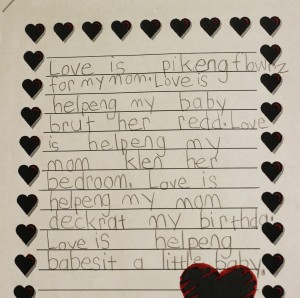 Love is pikeng flowrz
for my mom. Love is
helpeng my baby
brut her redd. Love
is helpeng my
mom klen her
bedroom. Love is
helpeng my mom
deckrat my birthda.
Love is helpeng
babesit a little baby.